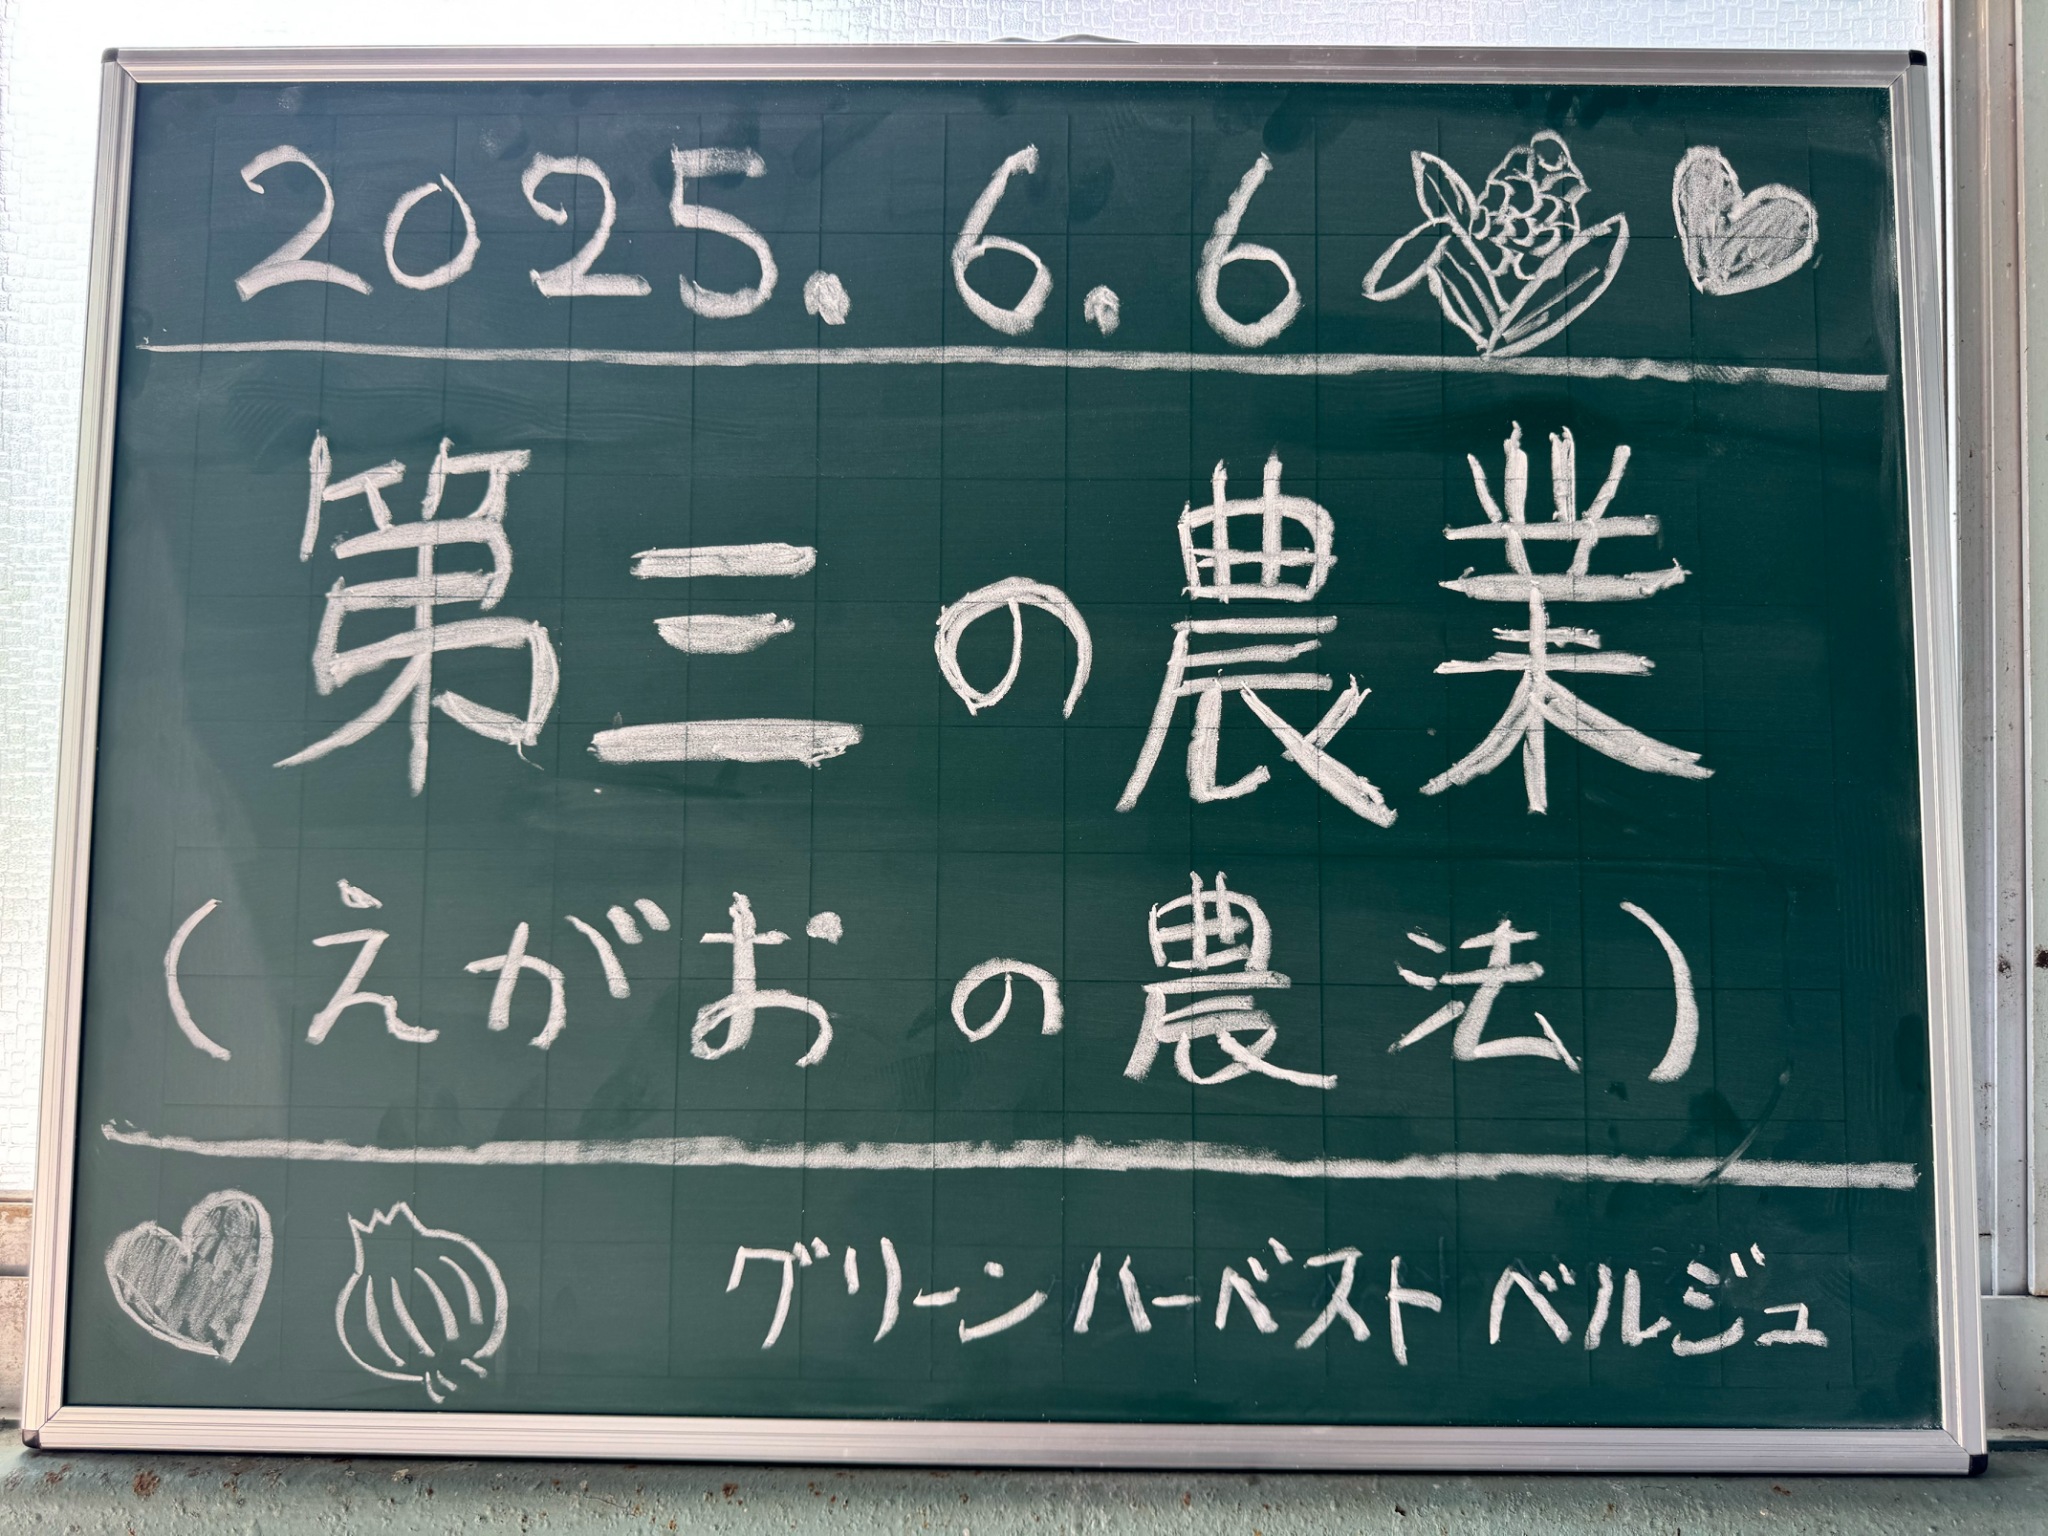 2025.6.6
第三の農業
(えがおの農法)
グリーンハーベスト ベルジュ